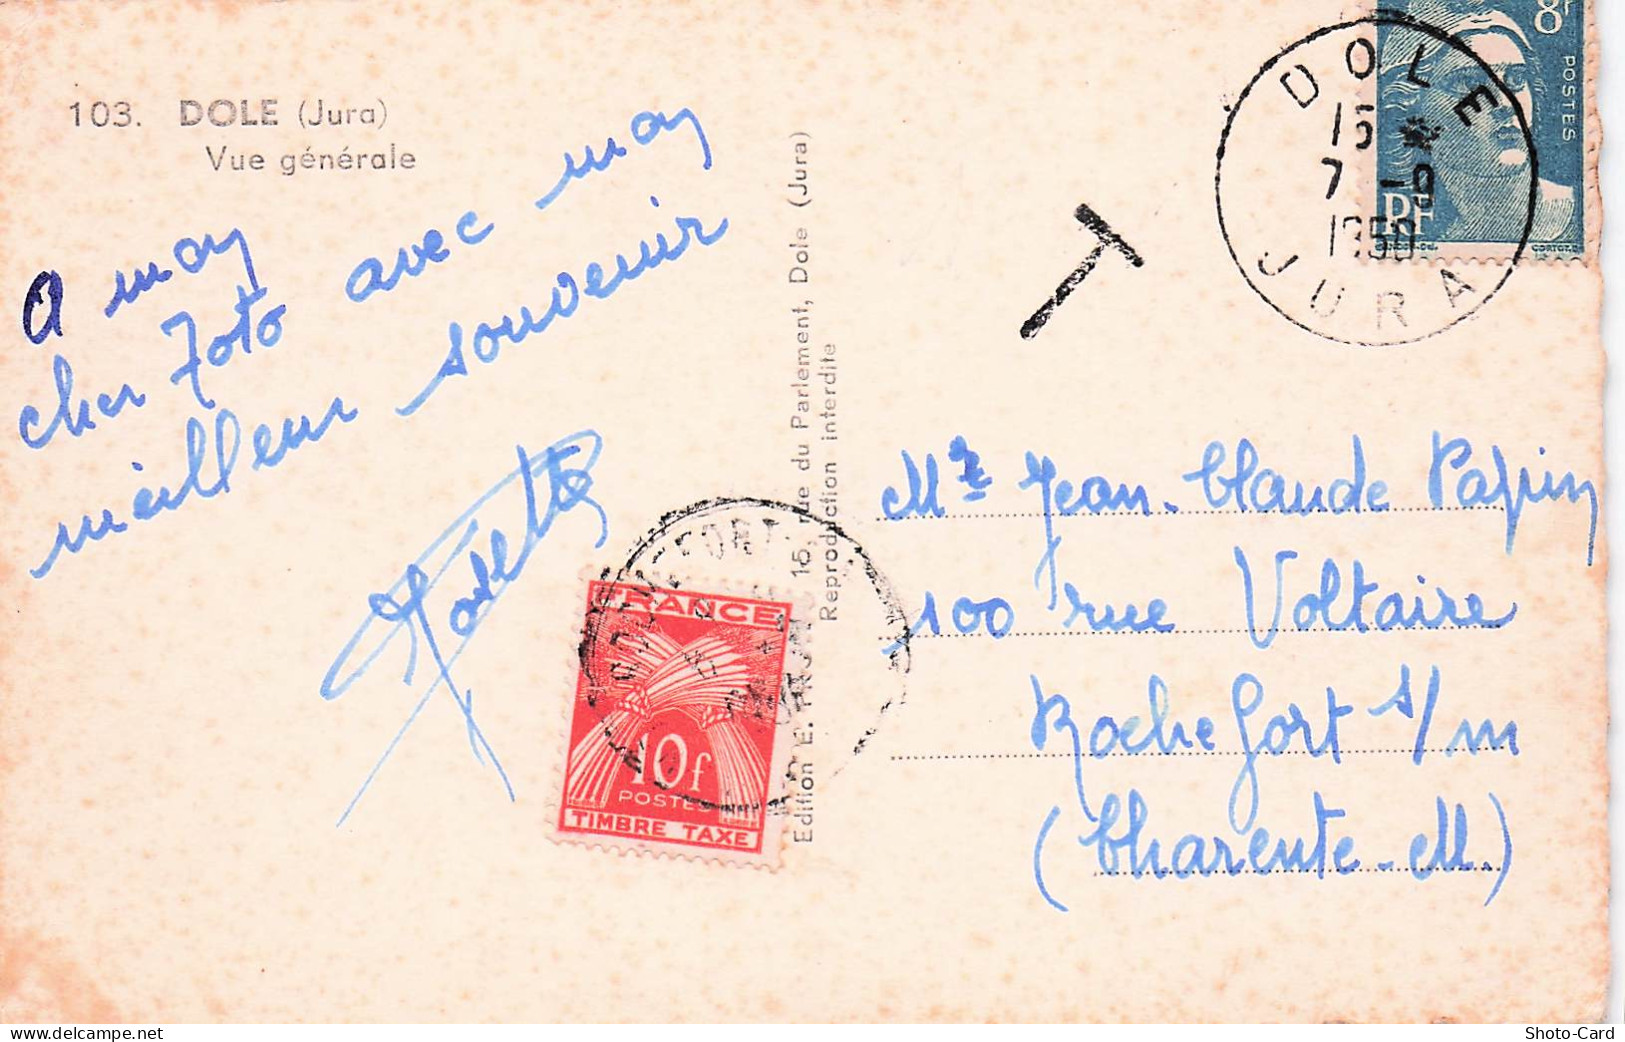 103. DOLE (Jura)
Vue générale
A mon
cher Toto avec mon
meilleur souvenir
Edition E. PROST, 15, rue du Parlement, Dole (Jura)
Reproduction interdite
FRANCE
10f
POSTES
TIMBRE TAXE
T
DOLE
15
7 -9
1950
JURA
8F
POSTES
RF
Mr Jean-Claude Papin
100 rue Voltaire
Rochefort s/m
(Charente-M.)
www.delcampe.net
Shoto-Card